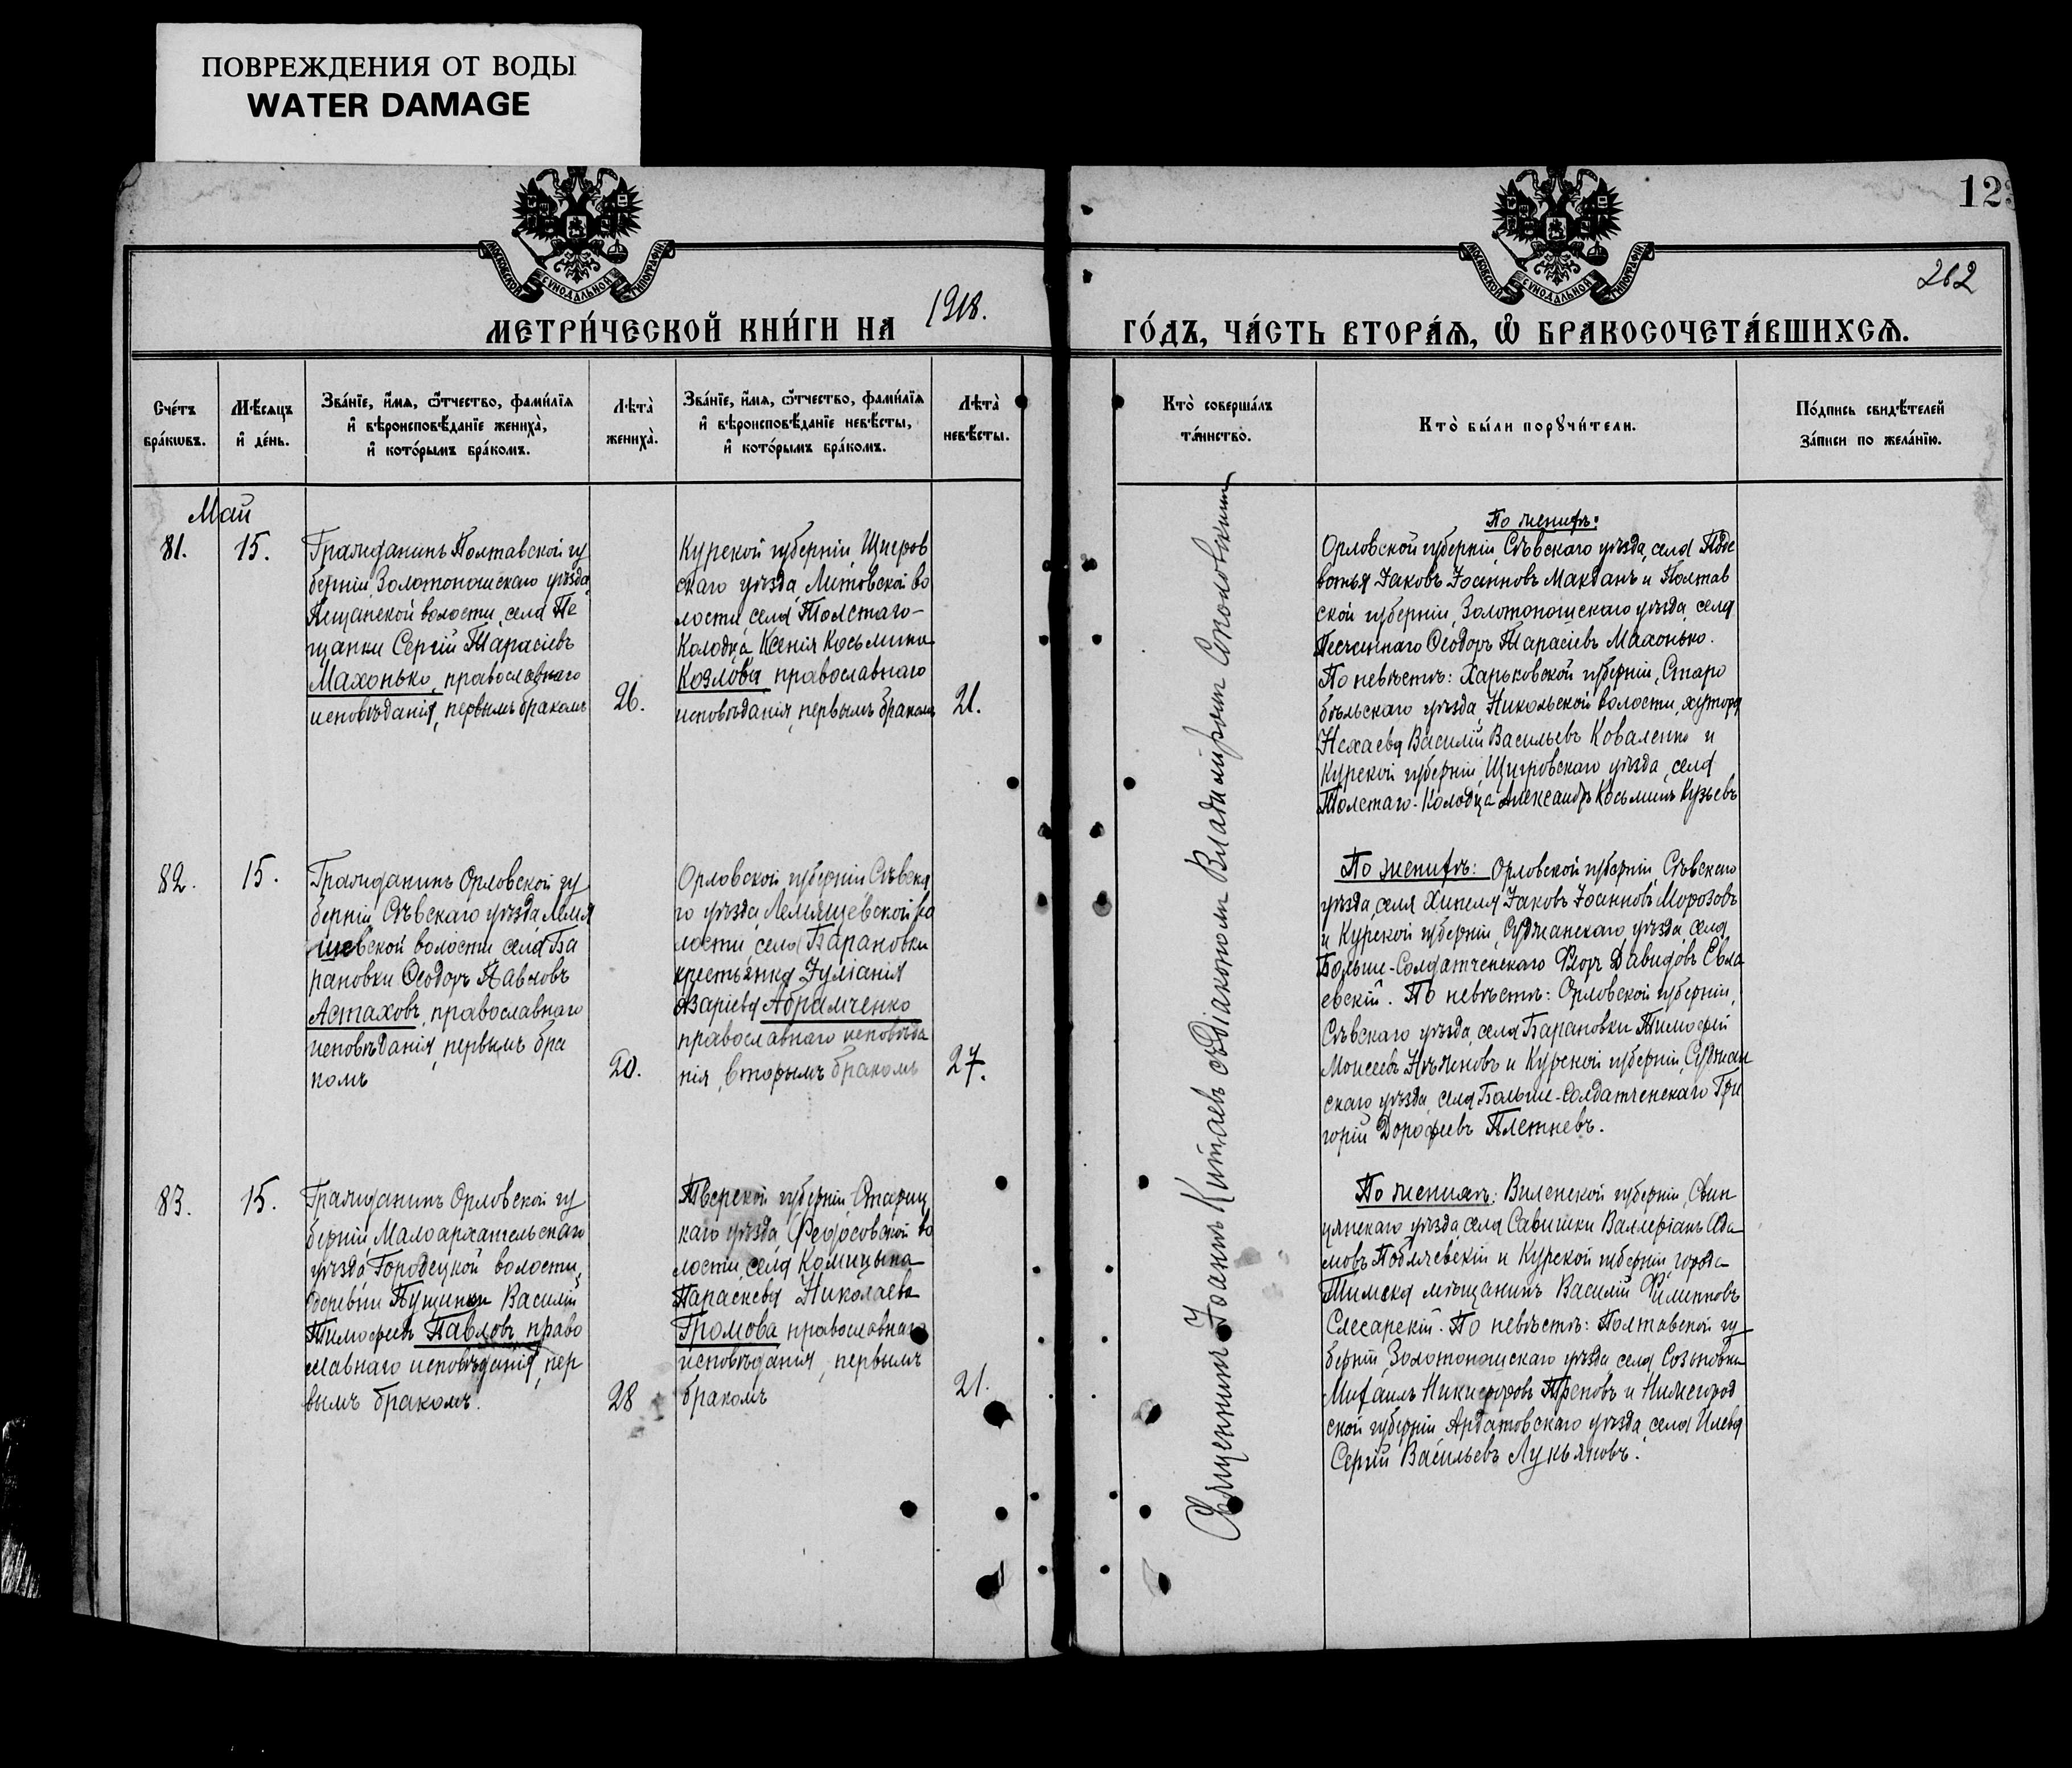 ПОВРЕЖДЕНИЯ ОТ ВОДЫ
WATER DAMAGE
123
262
МОСКОВСКОЙ СУНОДАЛЬНОЙ ТИПОГРАФІИ
МОСКОВСКОЙ СУНОДАЛЬНОЙ ТИПОГРАФІИ
МЕТРИ́ЧЕСКОЙ КНИ́ГИ НА 1918.
ГО́ДЪ, ЧА́СТЬ ВТОРА́Ѧ, Ѽ БРАКОСОЧЕТА́ВШИХСѦ.
Сче́тъ бра́кωвъ.
Мѣ́сяцъ и҆ де́нь.
Зва́нїе, и҆́мя, ѻ҆́тчество, фами́лїѧ и҆ вѣроисповѣ́данїе жениха̀, и҆ кото́рымъ бра́комъ.
Лѣта̀ жениха̀.
Зва́нїе, и҆́мя, ѻ҆́тчество, фами́лїѧ и҆ вѣроисповѣ́данїе невѣ́сты, и҆ кото́рымъ бра́комъ.
Лѣта̀ невѣ́сты.
Кто̀ соверша́лъ та́инство.
Кто̀ бы́ли порꙋчи́тели.
По́дпись свидѣ́телей за́писи по жела́нїю.
Май
81.
15.
Гражданинъ Полтавской гу
берніи, Золотоношскаго уѣзда,
Пещанской волости, села Пе
щанки Сергій Тарасіевъ
Махонько, православнаго
исповѣданія, первымъ бракомъ
26.
Курской губерніи, Щигров
скаго уѣзда, Липовской во
лости, села Толстаго-
Колодца Ксенія Косьмина
Козлова, православнаго
исповѣданія, первымъ бракомъ
21.
По женихѣ:
Орловской губерніи Сѣвскаго уѣзда, села
Іаковъ Іоанновъ Макданъ и Полтав
ской губерніи, Золотоношскаго уѣзда, села
Песчаннаго Ѳеодоръ Тарасіевъ Махонько.
По невѣстѣ: Харьковской губерніи, Старо
бѣльскаго уѣзда, Никольской волости, хутора
Нехаева Василій Васильевъ Коваленко и
Курской губерніи, Щигровскаго уѣзда, села
Толстаго-Колодца Александръ Косьминъ Кузьевъ
82.
15.
Гражданинъ Орловской гу
берніи, Сѣвскаго уѣзда, Лемя
шевской волости, села Ба
рановки Ѳеодоръ Павловъ
Астаховъ, православнаго
исповѣданія, первымъ бра
комъ
20.
Орловской губерніи, Сѣвска
го уѣзда, Лемяшевской во
лости, села Барановки
крестьянка Іуліанія
Азаріева Абрамченко
православнаго исповѣда
нія, вторымъ бракомъ
27.
По женихѣ: Орловской губерніи, Сѣвскаго
уѣзда, села Хинеля Іаковъ Іоанновъ Морозовъ
и Курской губерніи, Суджанскаго уѣзда, села
Больше-Солдатченскаго Флоръ Давидовъ Евла
евскій. По невѣстѣ: Орловской губерніи,
Сѣвскаго уѣзда, села Барановки Тимоѳей
Моисеевъ Нѣжновъ и Курской губерніи, Суджан
скаго уѣзда, села Больше-Солдатченскаго Гри
горій Дороѳеевъ Плетневъ.
83.
15.
Гражданинъ Орловской гу
берніи, Малоархангельскаго
уѣзда Городецкой волости,
деревни Пущинки Василій
Тимоѳеевъ Павловъ право
славнаго исповѣданія, пер
вымъ бракомъ.
28
Тверской губерніи, Стариц
каго уѣзда, Ѳедосовской во
лости, села Коницына
Параскева Николаева
Громова православнаго
исповѣданія, первымъ
бракомъ
21.
По женихѣ: Виленской губерніи, Свин
цянскаго уѣзда, села Савишки Валеріанъ Ада
мовъ и Курской губерніи, города
Тимска мѣщанинъ Василій Филипповъ
Слесарскій. По невѣстѣ: Полтавской гу
берніи, Золотоношскаго уѣзда села Созоновки
Михаилъ Никифоровъ и Нижегород
ской губерніи Ардатовскаго уѣзда, села Илева
Сергій Васильевъ Лукьяновъ.
Священникъ Іоаннъ Китаевъ съ діакономъ Владиміромъ Соколовскимъ